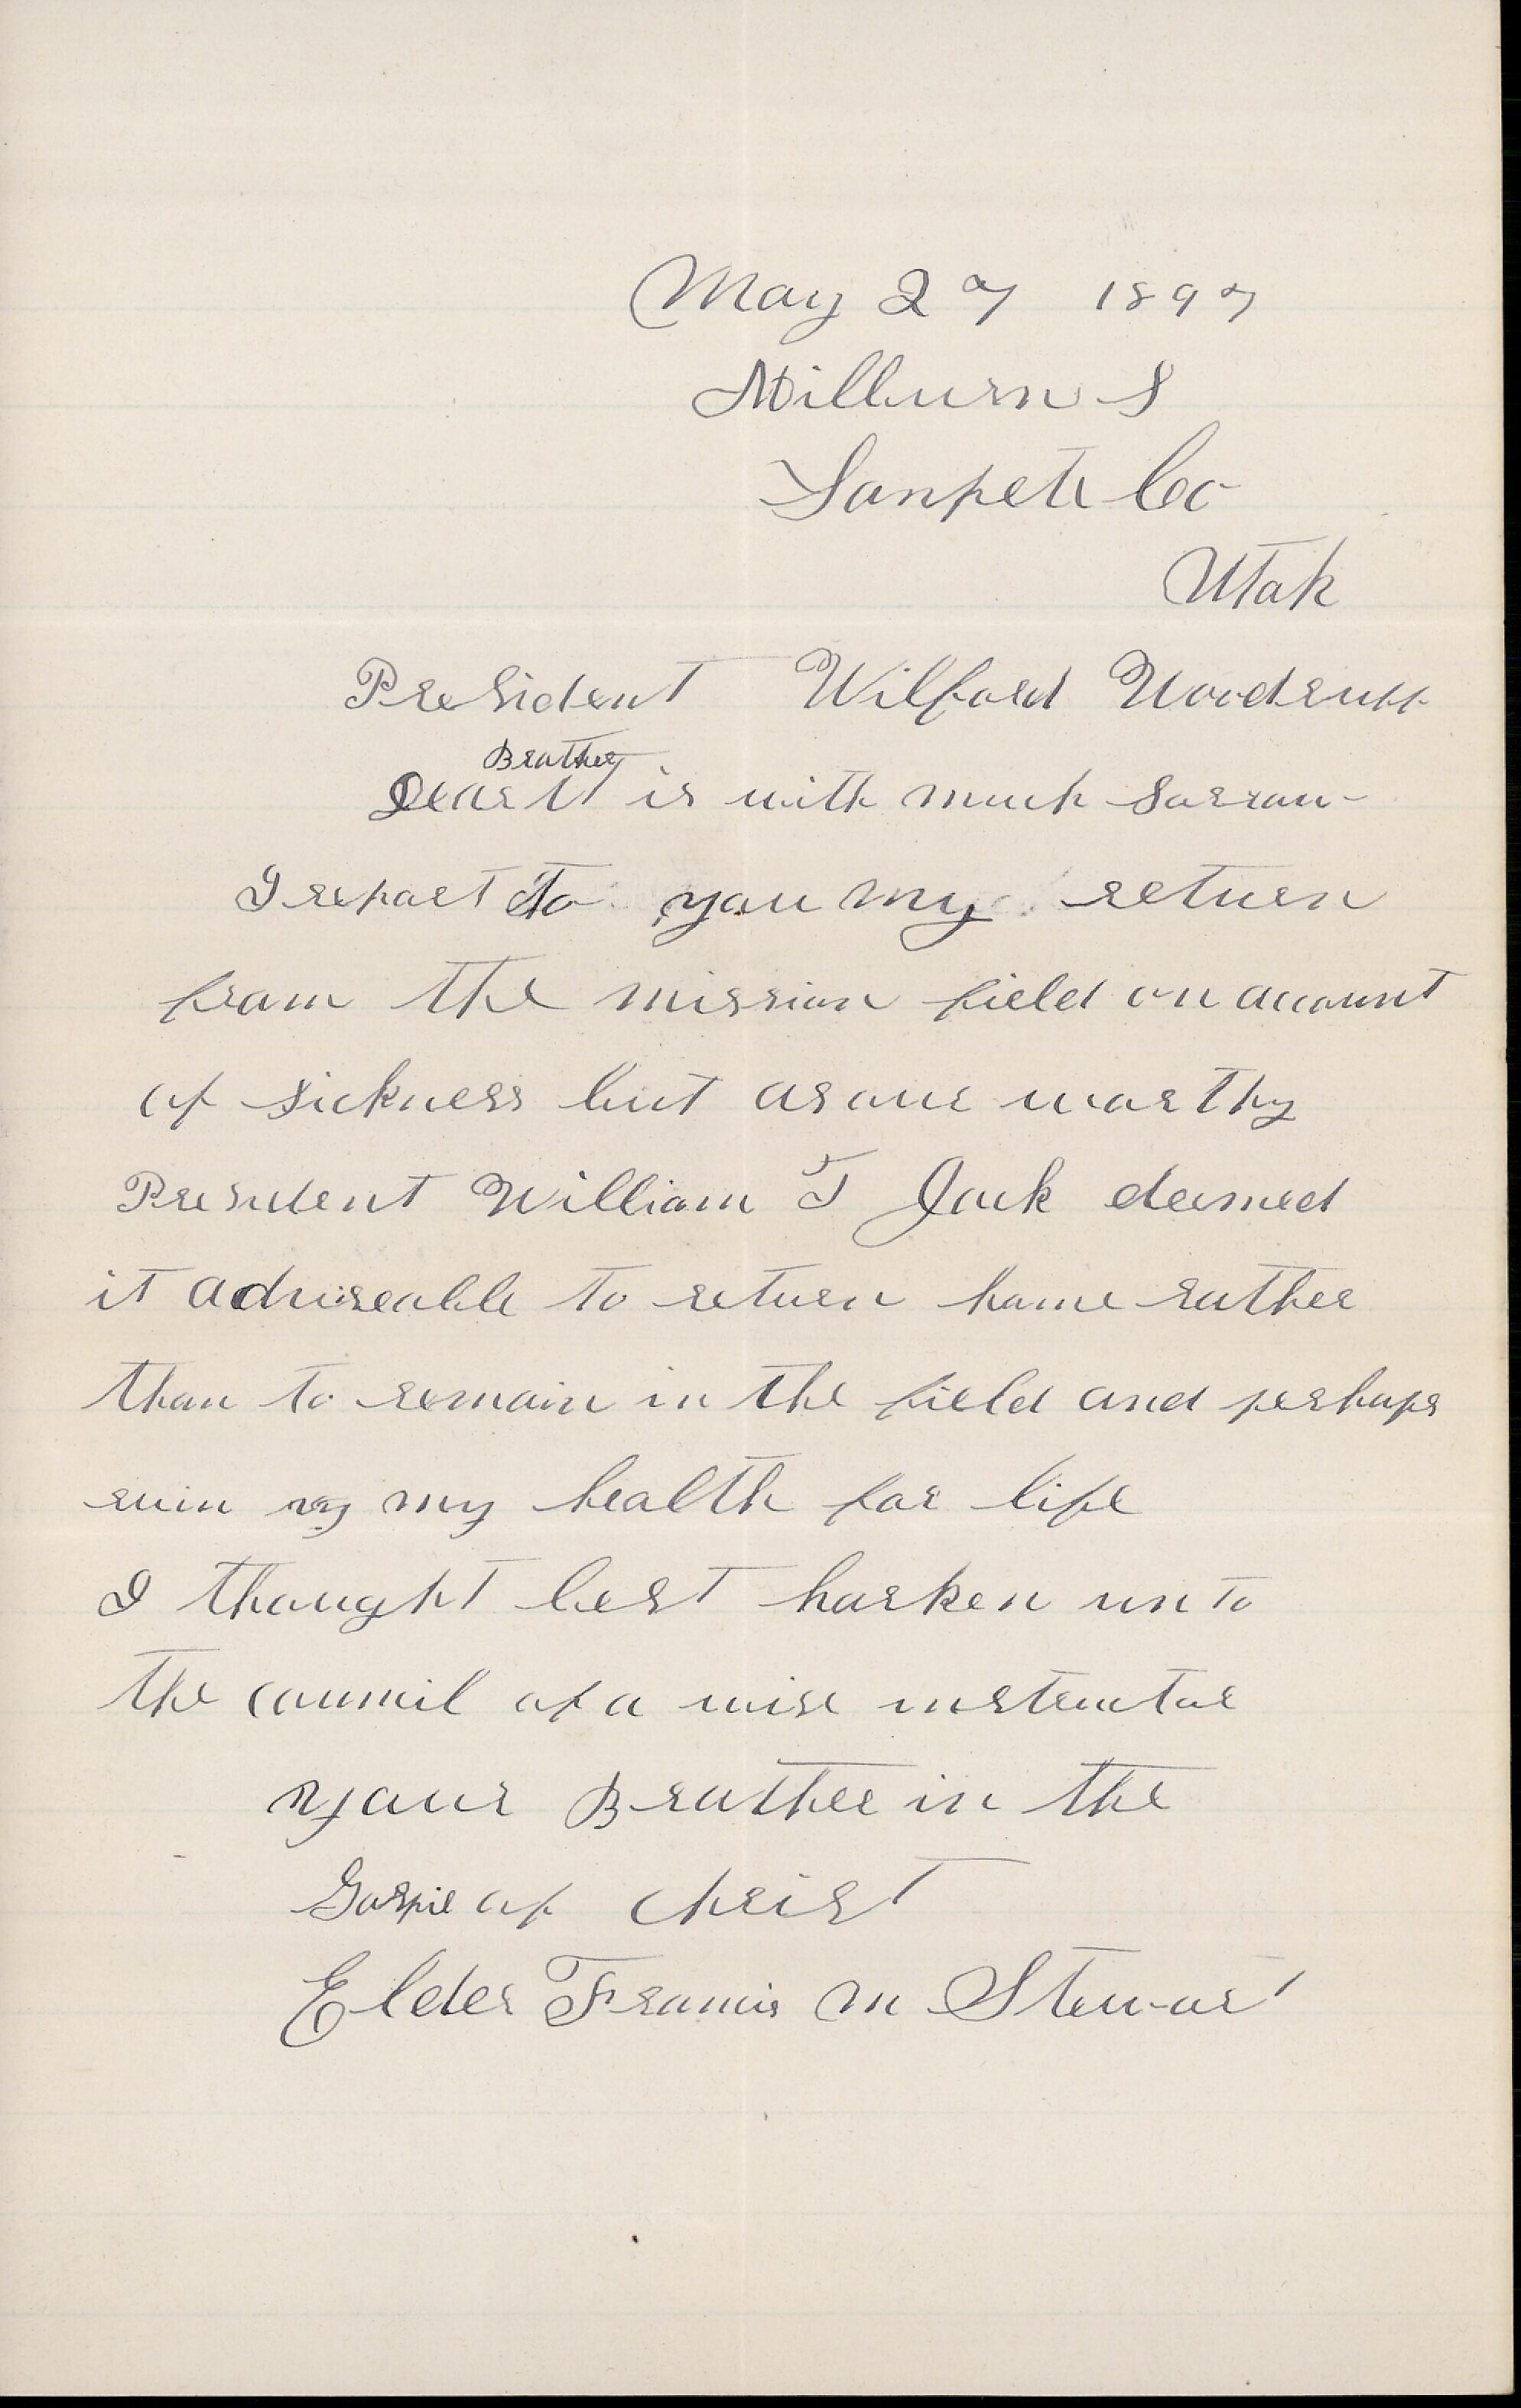 May 27 1897
Milburn S
Sanpete Co
Utah
President Wilford Woodruff
Brother
Dear It is with much sorrow
I report to you my return
from the mission field on account
of sickness but as our worthy
President William T Jack deemed
it adviseable to return home rather
than to remain in the field and perhaps
ruin my my health for life
I thought best harken unto
the council of a wise instructor
your Brother in the
Gospel of Christ
Elder Francis M Stewart